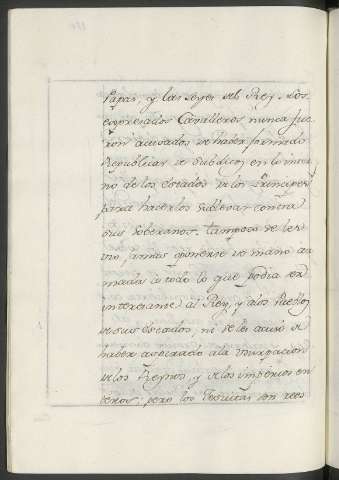 Papas, y las Leyes del Rey. Los
expresados Cavalleros nunca fue
ron acusados de haber formado
Republicas de Subditos en lo inter
no de los estados de los Principes
para hacerlos sublevar contra
sus soberanos. tampoco se les
vio jamas oponerse de mano ar
mada à todo lo que podia ser
interesante al Rey, y à los Pueblos
de sus estados, ni se les acusò de
haber aspirado à la Usurpacion
de los Reynos, y de los imperios en
teros; pero los Jesuitas son reos